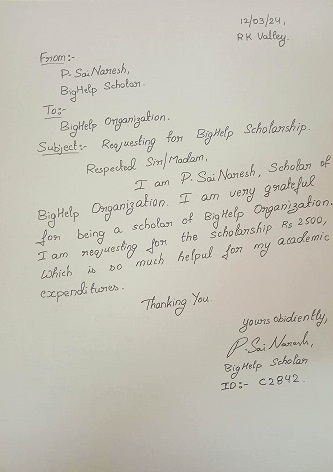 12/03/24,
RK Valley.
From:-
P. Sai Naresh,
BigHelp Scholar.
To:-
BigHelp Organization.
Subject:- Requesting for BigHelp Scholarship.
Respected Sir/Madam,
I am P. Sai Naresh, Scholar of
BigHelp Organization. I am very grateful
for being a scholar of BigHelp Organization.
I am requesting for the Scholarship Rs 2500,
which is so much helpul for my academic
expenditures.
Thanking You.
yours obidiently,
P. Sai Naresh,
BigHelp Scholar
ID:- C2842.